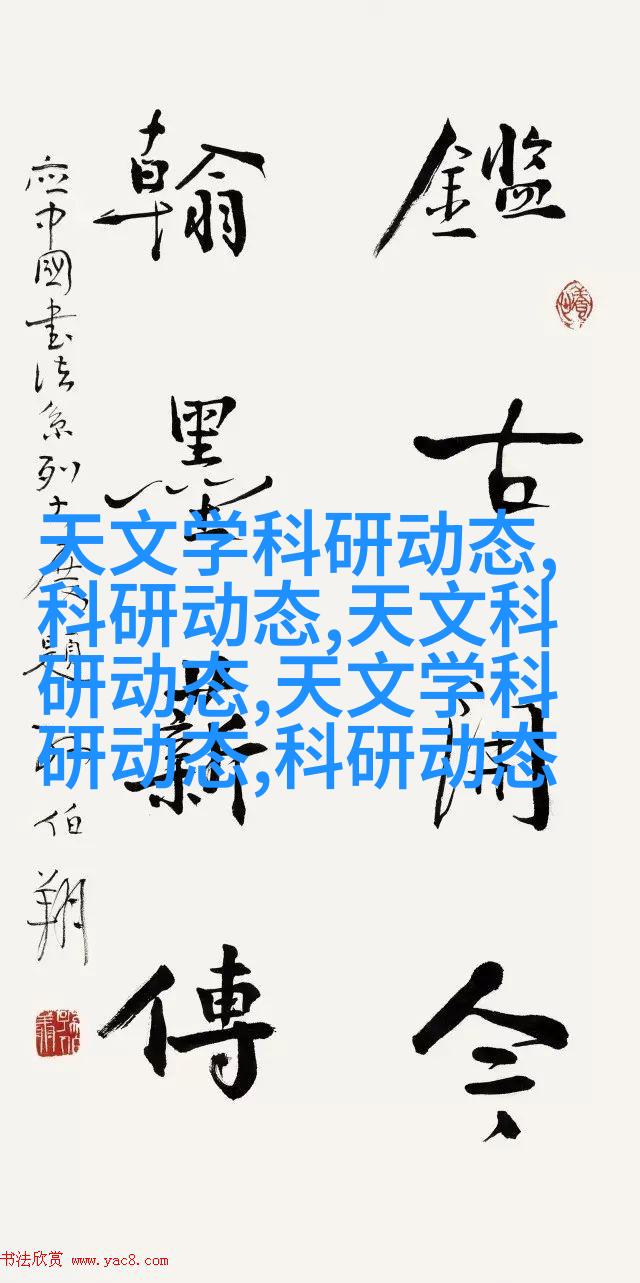 鑑古開今
翰墨薪傳
應中國書法系列大展題
伯翔
天文学科研动态,
科研动态,天文科
研动态,天文学科
研动态,科研动态
书法欣赏 www.yac8.com